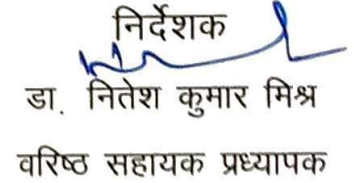 निर्देशक
डा. नितेश कुमार मिश्र
वरिष्ठ सहायक प्रध्यापक